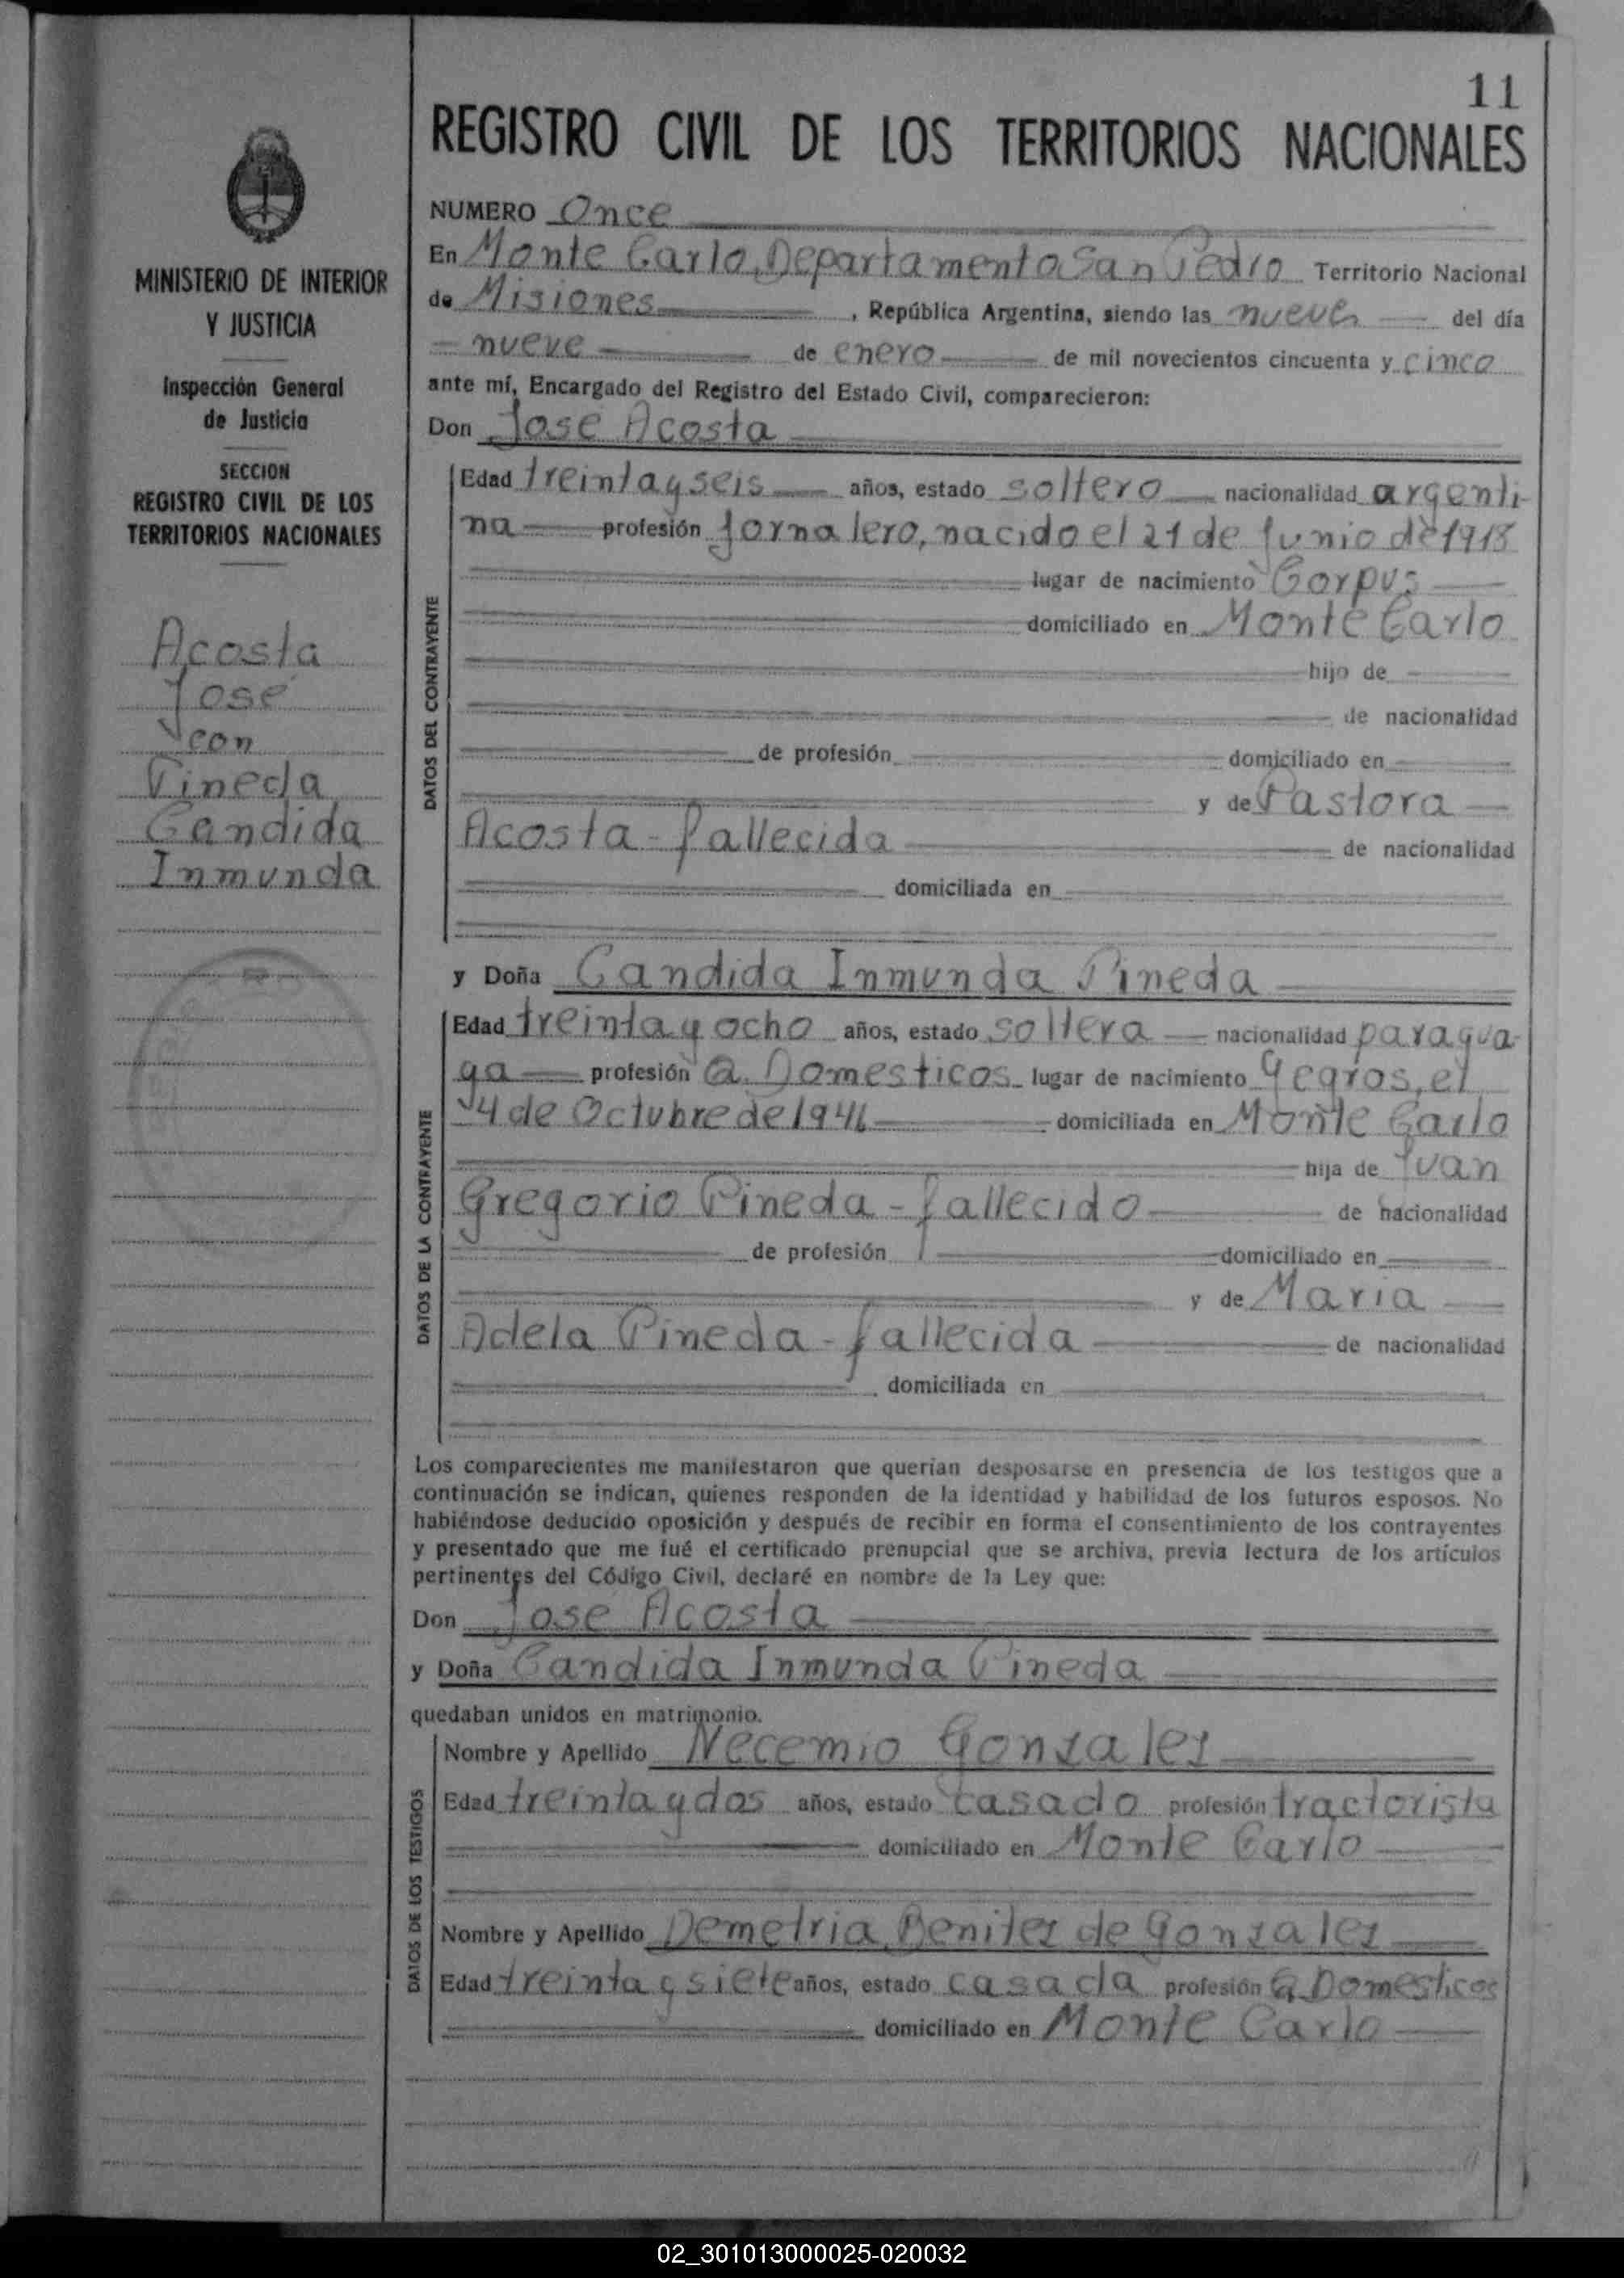 11
REGISTRO CIVIL DE LOS TERRITORIOS NACIONALES
MINISTERIO DE INTERIOR
Y JUSTICIA
Inspección General
de Justicia
SECCION
REGISTRO CIVIL DE LOS
TERRITORIOS NACIONALES
Acosta
José
con
Pineda
Candida
Inmunda
NUMERO Once
En Monte Carlo, Departamento San Pedro Territorio Nacional
de Misiones, República Argentina, siendo las nueve del día
nueve de enero de mil novecientos cincuenta y cinco
ante mí, Encargado del Registro del Estado Civil, comparecieron:
Don Jose Acosta
DATOS DEL CONTRAYENTE
Edad treinta y seis años, estado soltero nacionalidad argenti-
na profesión Jornalero, nacido el 21 de Junio de 1918
lugar de nacimiento Corpus
domiciliado en Monte Carlo
hijo de
de nacionalidad
de profesión domiciliado en
y de Pastora
Acosta - fallecida de nacionalidad
domiciliada en
y Doña Candida Inmunda Pineda
DATOS DE LA CONTRAYENTE
Edad treinta y ocho años, estado soltera nacionalidad paragua-
ya profesión Q. Domesticos lugar de nacimiento Yegros, el
4 de Octubre de domiciliada en Monte Carlo
hija de Juan
Gregorio Pineda - fallecido de nacionalidad
de profesión domiciliado en
y de Maria
Adela Pineda - fallecida de nacionalidad
domiciliada en
Los comparecientes me manifestaron que querían desposarse en presencia de los testigos que a
continuación se indican, quienes responden de la identidad y habilidad de los futuros esposos. No
habiéndose deducido oposición y después de recibir en forma el consentimiento de los contrayentes
y presentado que me fué el certificado prenupcial que se archiva, previa lectura de los artículos
pertinentes del Código Civil, declaré en nombre de la Ley que:
Don Jose Acosta
y Doña Candida Inmunda Pineda
quedaban unidos en matrimonio.
DATOS DE LOS TESTIGOS
Nombre y Apellido Necemio Gonzales
Edad treinta y dos años, estado casado profesión tractorista
domiciliado en Monte Carlo
Nombre y Apellido Demetria Benitez de Gonzales
Edad treinta y siete años, estado casada profesión Q. Domesticos
domiciliado en Monte Carlo
02_301013000025-020032